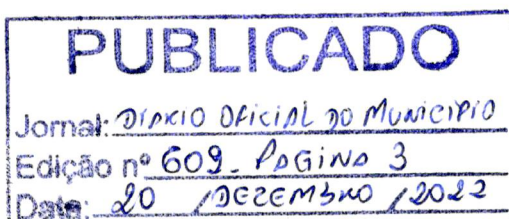 PUBLICADO
Jornal: DIÁRIO OFICIAL DO MUNICIPIO
Edição nº 609 - PAGINA 3
Data: 20 / DEZEMBRO / 2022